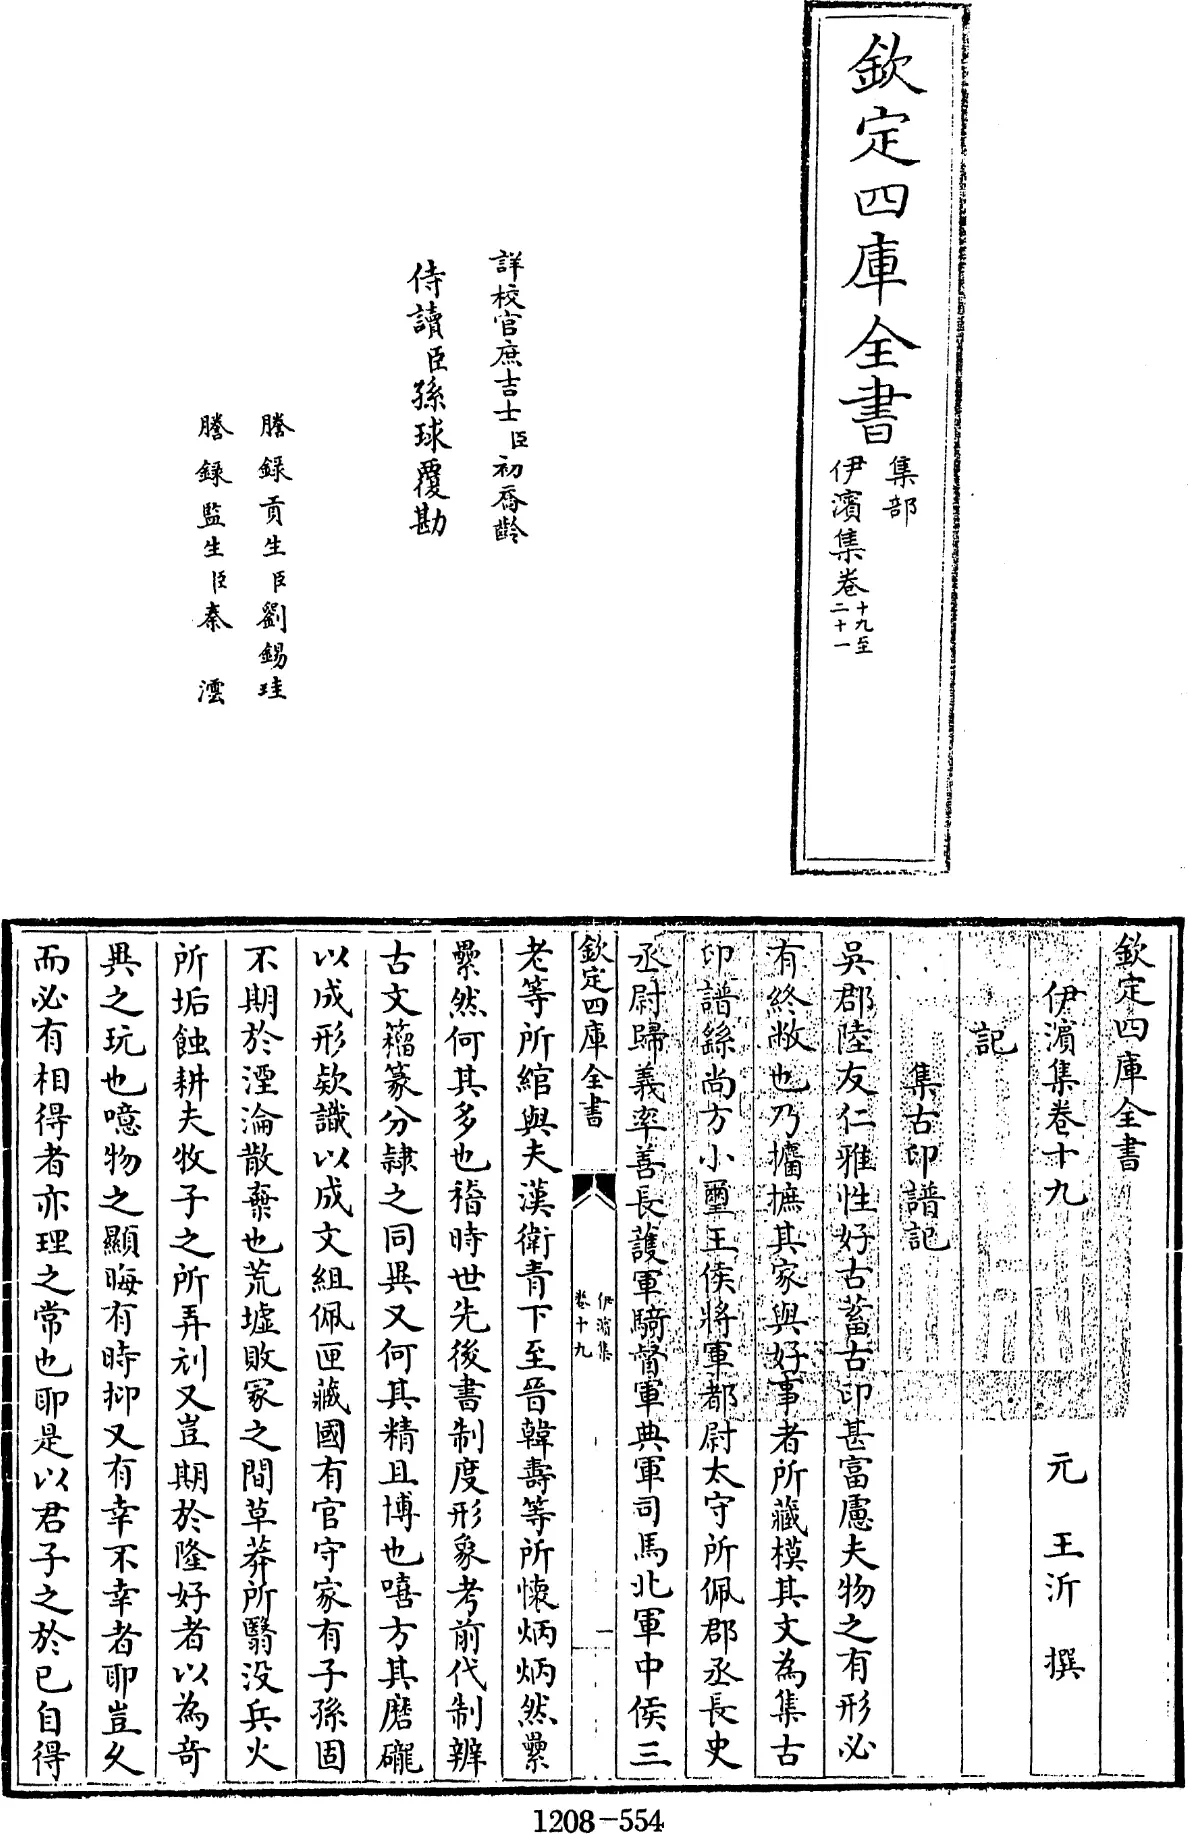 欽定四庫全書
集部
伊濱集卷十九至二十一
詳校官庶吉士臣初喬齡
侍讀臣孫球覆勘
謄錄貢生臣劉錫珪
謄錄監生臣秦澐
欽定四庫全書
伊濱集卷十九
元 王沂 撰
記
集古印譜記
吳郡陸友仁雅性好古蓄古印甚富慮夫物之有形必
有終敝也乃攟摭其家與好事者所藏模其文為集古
印譜繇尚方小璽王侯將軍都尉太守所佩郡丞長史
丞尉歸義率善長護軍騎督軍典軍司馬北軍中侯三
欽定四庫全書
伊濱集
卷十九
一
老等所綰與夫漢衛青下至晉韓壽等所懷炳炳然纍
纍然何其多也稽時世先後書制度形象考前代制辨
古文籀篆分隸之同異又何其精且博也嘻方其磨礲
以成形欵識以成文組佩匣藏國有官守家有子孫固
不期於湮淪散棄也荒墟敗冢之間草莽所翳没兵火
所垢蝕耕夫牧子之所弄刓又豈期於隆好者以為竒
異之玩也噫物之顯晦有時抑又有幸不幸者耶豈久
而必有相得者亦理之常也耶是以君子之於已自得
1208-554